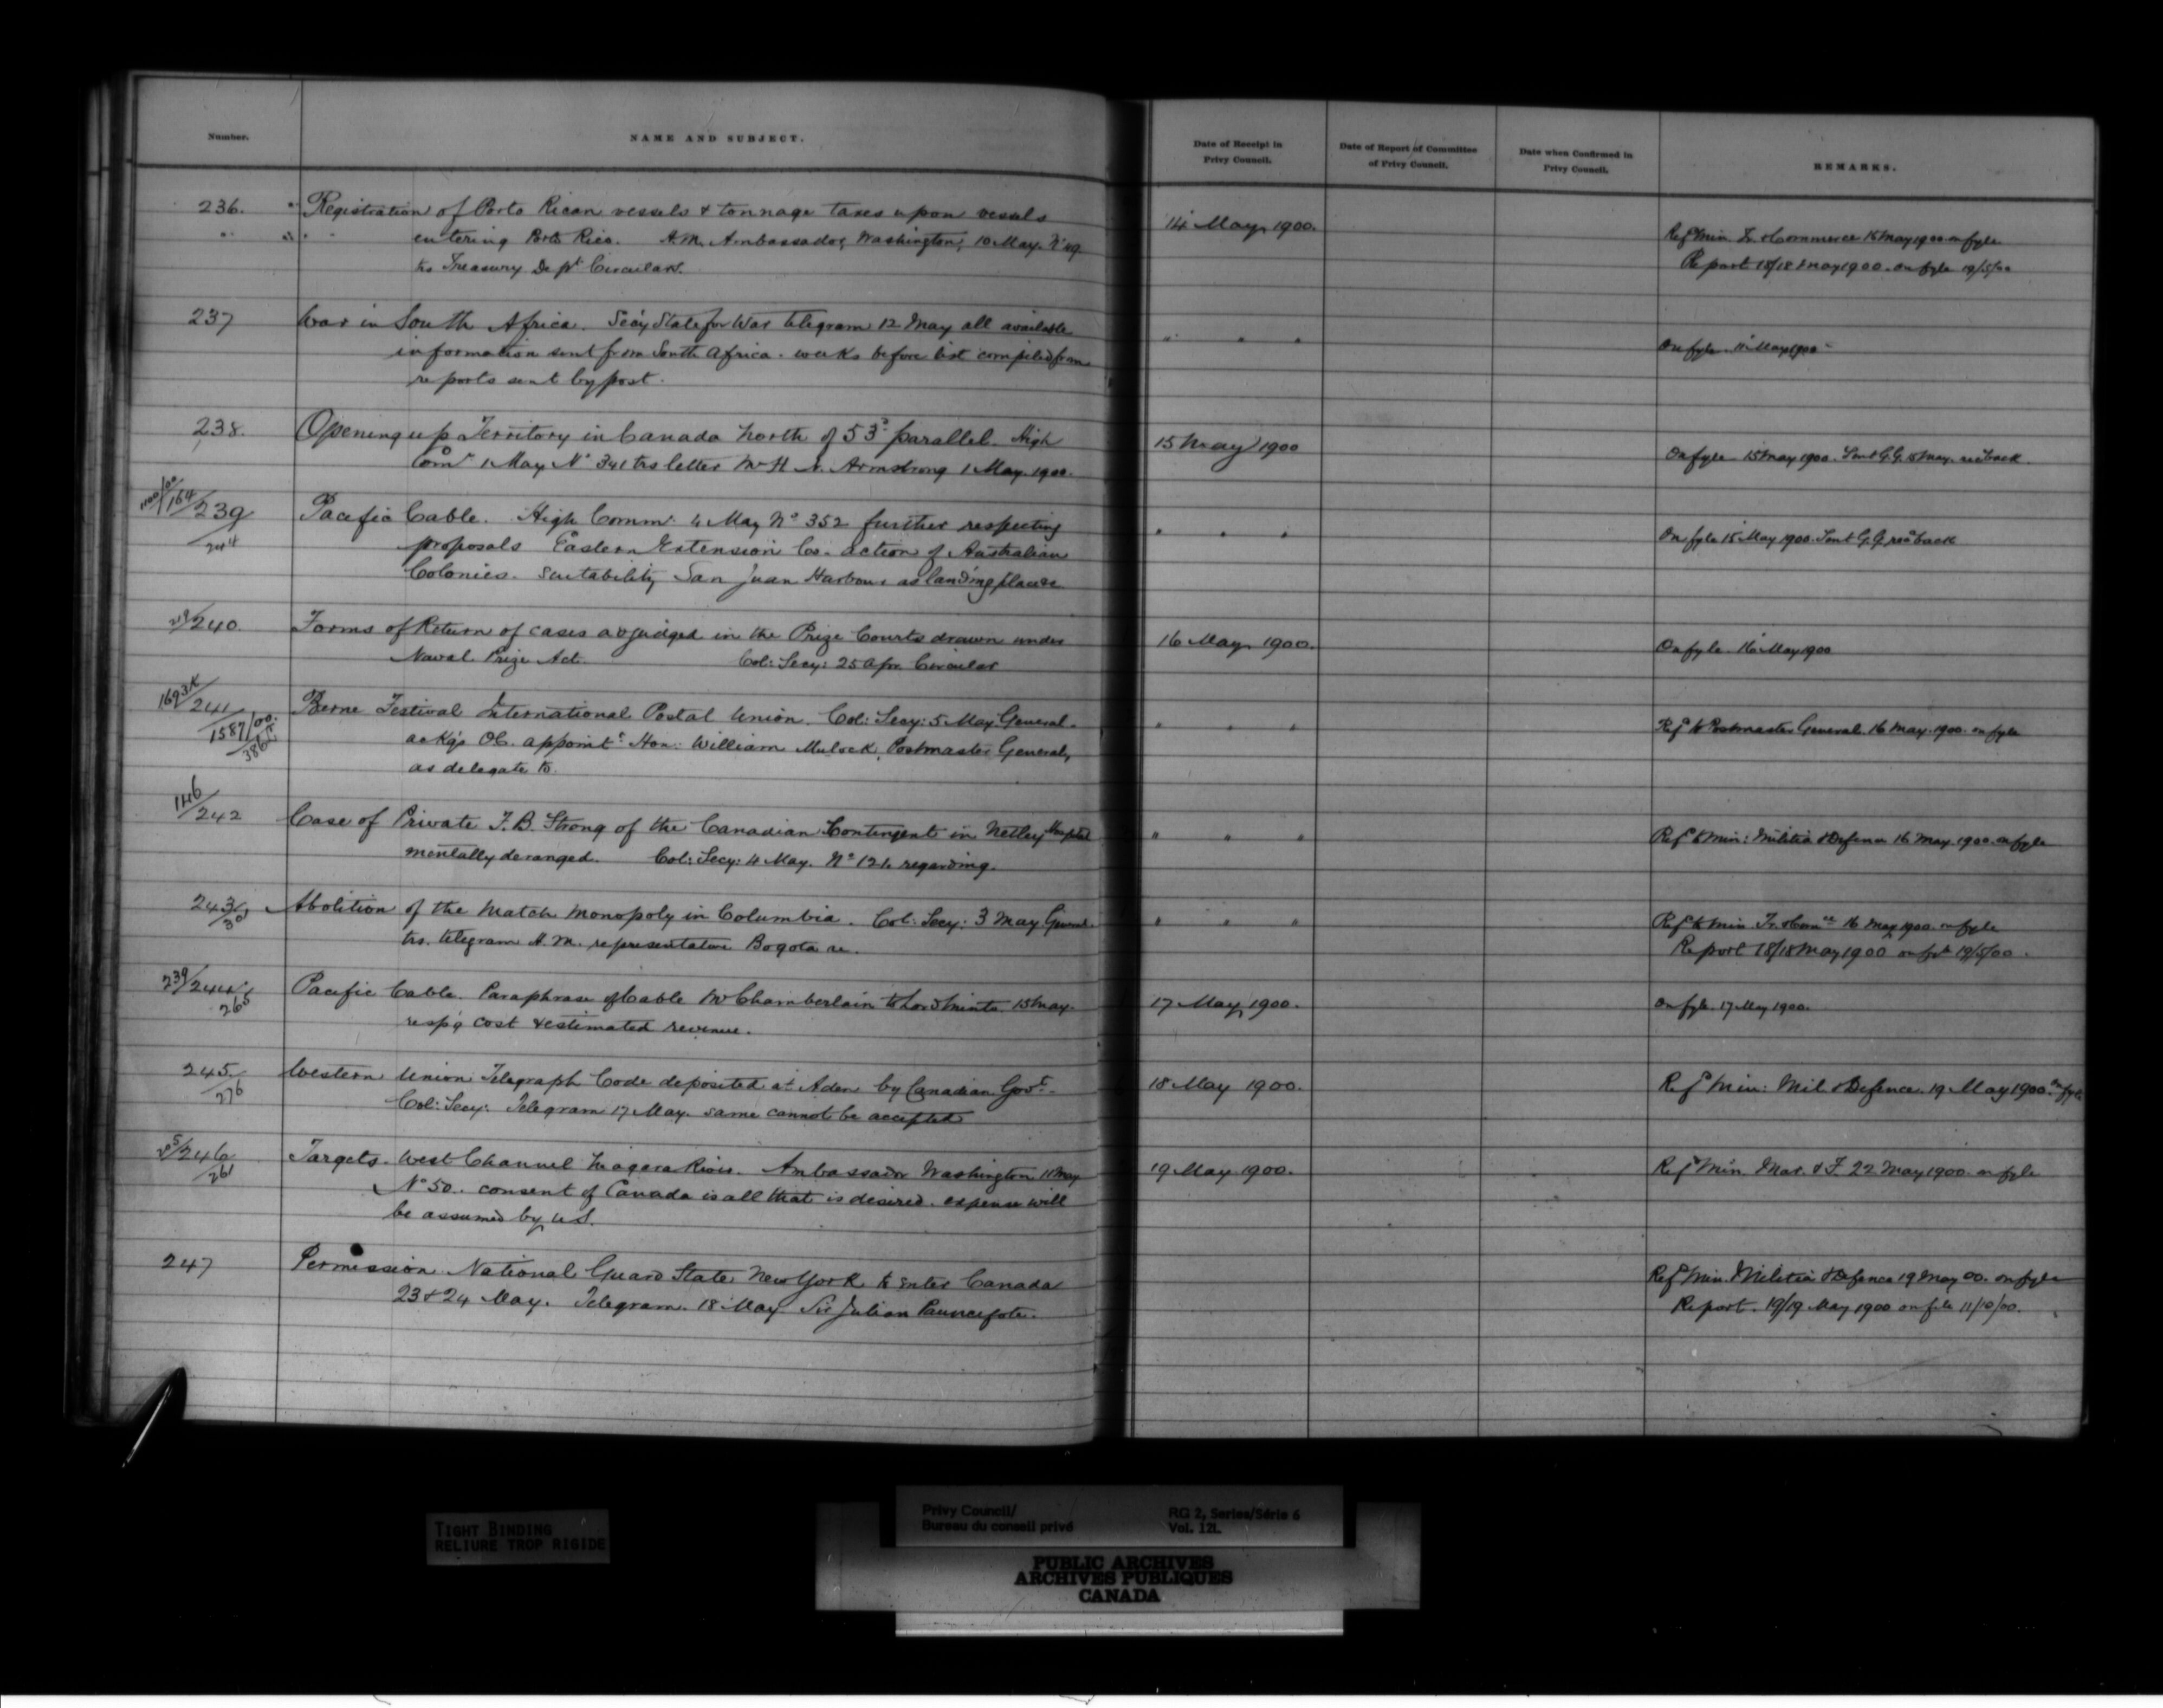 Number.
NAME AND SUBJECT.
Date of Receipt in
Privy Council.
Date of Report of Committee
of Privy Council.
Date when Confirmed in
Privy Council.
REMARKS.
236. Registration of Porto Rican vessels & tonnage taxes upon vessels
entering Porto Rico. H.M. Ambassador, Washington, 10 May. Nº 49
trs Treasury Dept Circulars.
14 May, 1900.
Refd Min. Tr. & Commerce 15 May 1900 on fyle
Report 18/18 May 1900. on fyle 19/5/00
237 War in South Africa. Secy State for War telegram 12 May all available
information sent from South Africa. weeks before list compiled from
reports sent by post.
" " "
On fyle. May 1900
238. Opening up Territory in Canada north of 53º parallel. High
Comr 1 May Nº 341 trs letter Mr H. N. Armstrong 1 May. 1900.
15 May 1900
On fyle 15 May 1900. Sent G.G. 15 May. back
164/239 Pacific Cable. High Commr. 4 May Nº 352 further respecting
244 proposals Eastern Extension Co. action of Australian
Colonies. suitability San Juan Harbour as landing place
" " "
On fyle 15 May 1900. Sent G.G. back
240. Forms of Return of cases adjudged in the Prize Courts drawn under
Naval Prize Act. Col: Secy: 25 Apr. Circular
16 May, 1900.
On fyle. 16 May 1900
1693K/241 Berne Festival International Postal Union. Col: Secy: 5 May General.
1587/00. ackg's OC. appointg Hon: William Mulock, Postmaster General,
386K as delegate to.
" " "
Refd to Postmaster General. 16 May. 1900. on fyle
146/242 Case of Private F. B. Strong of the Canadian Contingent in Netley Hospital
mentally deranged. Col: Secy: 4 May. Nº 121. regarding.
" " "
Refd to Min: Militia & Defence 16 May. 1900. on fyle
243/301 Abolition of the Match Monopoly in Columbia. Col: Secy: 3 May General.
trs. telegram H.M. representative Bogota re.
" " "
Refd to Min Tr. & Comce 16 May 1900. on fyle
Report 18/18 May 1900 on fyle 19/5/00.
239/244 Pacific Cable. Paraphrase of Cable Mr Chamberlain to Lord Minto. 15 May.
265 resp'g cost & estimated revenue.
17 May, 1900.
On fyle. 17 May 1900.
245 Western Union Telegraph Code deposited at Aden by Canadian Govt.
276 Col: Secy: Telegram 17 May. same cannot be accepted
18 May 1900.
Refd Min: Mil & Defence. 19 May 1900. on fyle
246 Targets. West Channel Niagara River. Ambassador Washington 11 May
261 Nº 50. consent of Canada is all that is desired. expense will
be assumed by U.S.
19 May. 1900.
Refd Min. Mar. & F. 22 May 1900. on fyle
247 Permission National Guard State New York to enter Canada
23 & 24 May. Telegram. 18 May Sir Julian Pauncefote.
Refd Min. Militia & Defence 19 May 00. on fyle
Report. 19/19 May 1900 on fyle 11/10/00.
TIGHT BINDING
RELIURE TROP RIGIDE
Privy Council/
Bureau du conseil privé
RG 2, Series/Série 6
Vol. 121.
PUBLIC ARCHIVES
ARCHIVES PUBLIQUES
CANADA